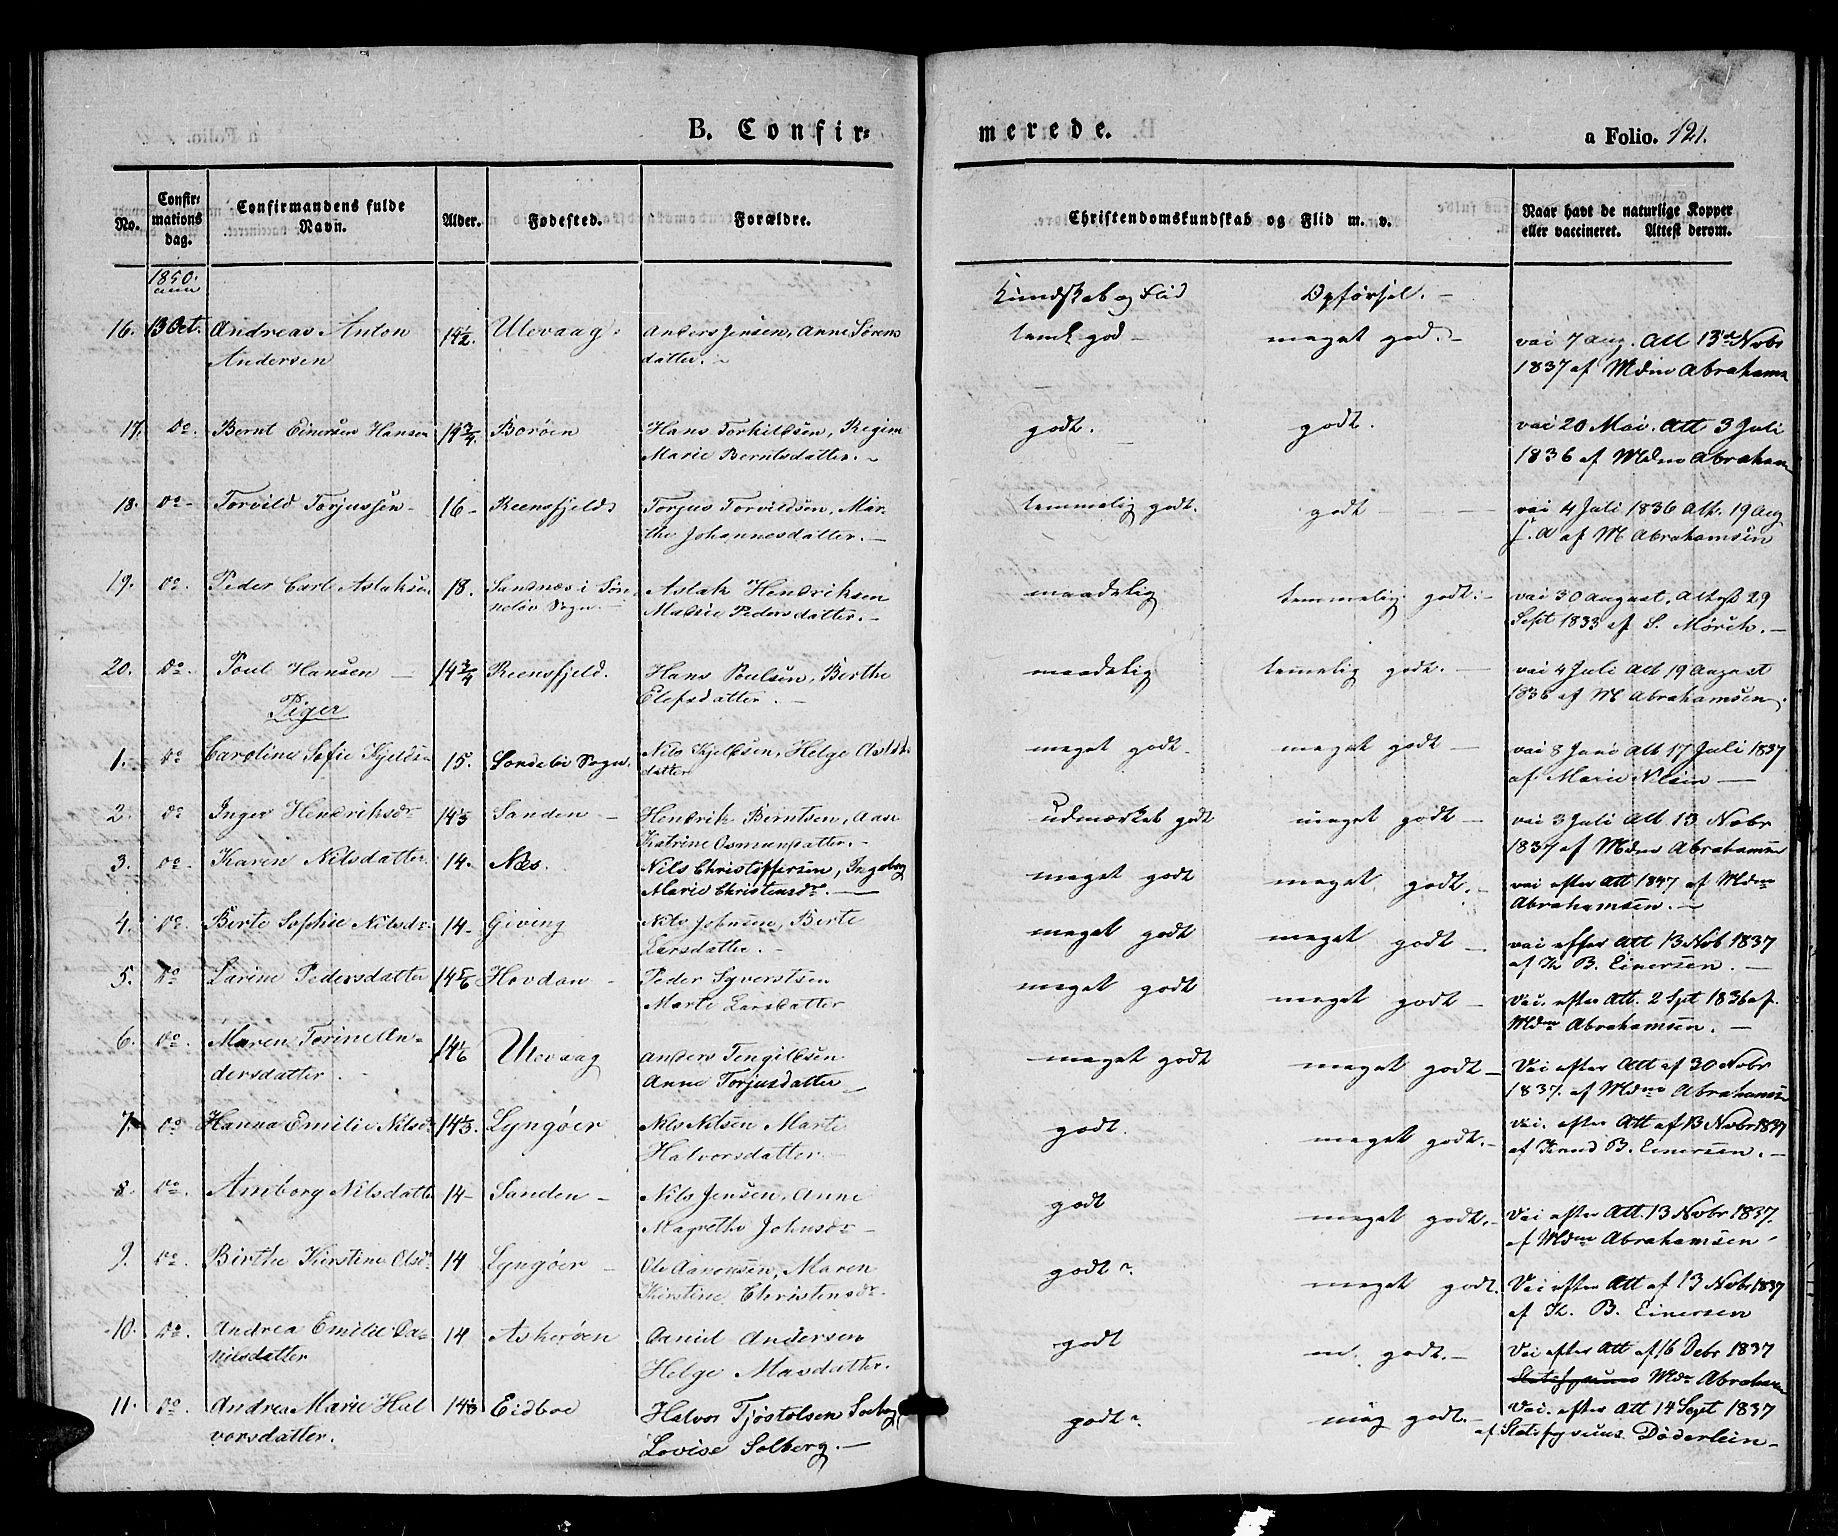 B. Confir- merede. a Folio. 121.
No. Confir-mations dag. Confirmandens fulde Navn. Alder. Fødested. Forældre. Christendomskundskab og Flid m. v. Naar havt de naturlige Kopper eller vaccineret. Attest derom.
1850. Kundskab og Flid Opførsel. -
16. 13 Oct. Andreas Anton 14½. Ulevaag. Anders Jensen, Anne Sørens teml. god - meget god. - vai 7 Aug. Att 13de Nobr
Andersen datter. - 1837 af Mdm Abrahams
17. Do. Bernt Einersen Hansen 14¾. Borøen Hans Torkildsen, Regine godt. godt. vai 20 Mai. Att 3 Juli
Marie Berntsdatter. - 1836 af Mdm Abraham
18. Do - Torvild Torjussen - 16 - Reensfjeld Torjus Torvildsen, Mar temmelig godt. godt vai 4 Juli 1836 Att. 19 Aug
the Johannesdatter. - f. A af M Abrahamsen
19. Do. Peder Carl Aslaksen 18. Sandnæs i Søn Aslak Hendriksen maadelig temmelig godt. - vai 30 August, Attest 29
neløv Sogn - Malvie Pedersdatter. - Sept 1833 af S. Mørch. -
20. Do. Poul Hansen - 14¾ Reensfjeld. Hans Poulsen, Berthe maadelig temelig godt. - vai 4 Juli Att 19 August
Elefsdatter. - 1836 af M Abrahamsen.
Piger
1. Do Caroline Sofie Kjelds 15. Søndeløv Sogn. Nils Kjeldsen, Helge meget godt. meget godt - vai 8 Juni Att 17 Juli 1837
datter af Marie Nilsen -
2. Do Inger Hendriksdr 14⅓ Sanden - Hendrik Berntsen, Aase udmærket godt meget godt - vai 3 Juli Att 13 Nobr
Katrine Osmundsdatter. - 1837 af Mdm Abrahamsen
3. Do. Karen Nilsdatter 14. Næs. Nils Christoffersen, Ingeborg meget godt meget godt. - vai efter Att 1837 af Mdm
Marie Christensdr. - Abrahamsen. -
4. Do. Berte Sophie Nilsdr 14 - Giving Nils Johnsen, Berte meget godt meget godt - vai efter Att 13 Nob 1837
Larsdatter. - af K B. Einersen. -
5. Do Larine Pedersdatter 14⅚ Hovdan - Peder Syvertsen meget godt meget godt - Vai. efter Att. 2 Spt 1836 af.
Marte Larsdatter Mdm Abrahamsen. -
6. Do. Maren Torine An- 14⅙ Ulevaag Anders Tengilsen meget godt meget godt - Vai efter Att af 30 Nobr
dersdatter. Anne Torjusdatter - 1837. af Mdm Abrahamsen
7. Do Hanna Emilie Nilsdr 14⅓. Lyngøer. Nils Nilsen Marte godt. meget godt. - Vai. efter Att af 13 Nobr 1837
Halvorsdatter - af Knud B. Einersen. -
8. Do. Amborg Nilsdatter 14 - Sanden - Nils Jensen, Anne godt meget godt. - Vai efter Att. 13 Nobr 1837.
Magrethe Johnsdr - af Mdm Abrahamsen
9. Do. Birthe Kirstine Olsdr 14 Lyngøer - Ole Aanonsen, Maren godt. meget godt. Vai efter Att af 13 Nobr 1837
Kirstine Christensdr. af K. B. Einersen
10. Do. Andrea Emilie Da- 14 Askerøen Daniel Andersen godt m. godt. - Vai efter Att af 16 Debr 1837
nielsdatter Helge Masdatter. Mdm Abraham
11. Do. Andrea Marie Hal 14⅓ Eidboe Halvor Tjøstolsen godt. meg godt. - Vai. efter Att 14 Sept 1837
vorsdatter. Lovise Solberg. - af Døderlein -